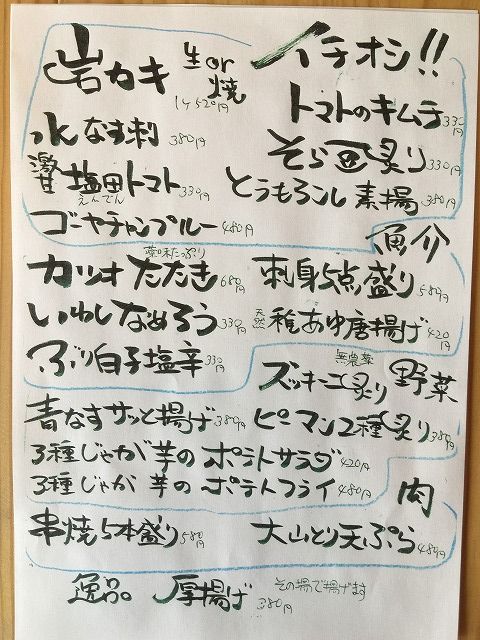 イチオシ!!
岩カキ 生or焼 1ヶ520円
トマトのキムチ 330円
水なす刺 380円
そら豆炙り 330円
激甘 塩田トマト 330円
えんでん
とうもろこし素揚 380円
ゴーヤチャンプルー 480円
魚介
薬味たっぷり
カツオたたき 680円
刺身5点盛り 580円
いわしなめろう 330円
天然 稚あゆ唐揚げ 420円
ぶり白子塩辛 330円
野菜
無農薬
ズッキーニ炙り
青なすサッと揚げ 380円
ピーマン2種炙り 380円
3種じゃが芋のポテトサラダ 420円
3種じゃが芋のポテトフライ 480円
肉
串焼5本盛り 580円
大山とり天ぷら 480円
厚揚げ 380円 その場で揚げます